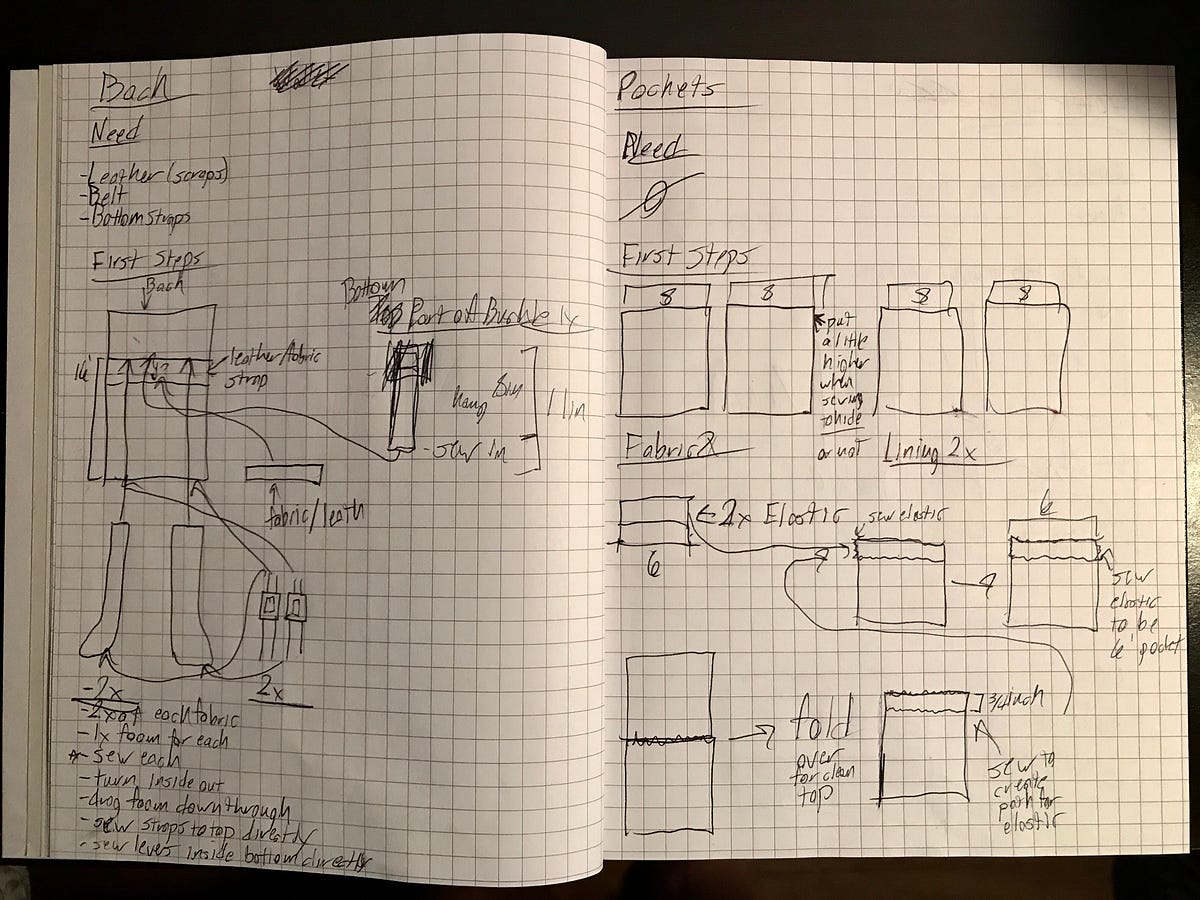 Back
Need
-Leather (scraps)
-Belt
-Bottom straps
First Steps
Back
16"
leather/fabric
strap
Bottom
Part of A Buckle 1x
hang
8in
11in
-sew in
fabric/leath
-2x
2x
-2x of each fabric
-1x foam for each
-sew each
-turn inside out
-drag foam down through
-sew straps to top directly
-sew levers inside bottom directly
Pockets
Need
Ø
First Steps
8
8
8
8
put
a little
higher
when
sewing
to hide
or not
Fabric 2x
Lining 2x
2x Elastic
6
sew elastic
6
sew
elastic
to be
6" pocket
fold
over
for clean
top
3/4 inch
sew to
create
path for
elastic